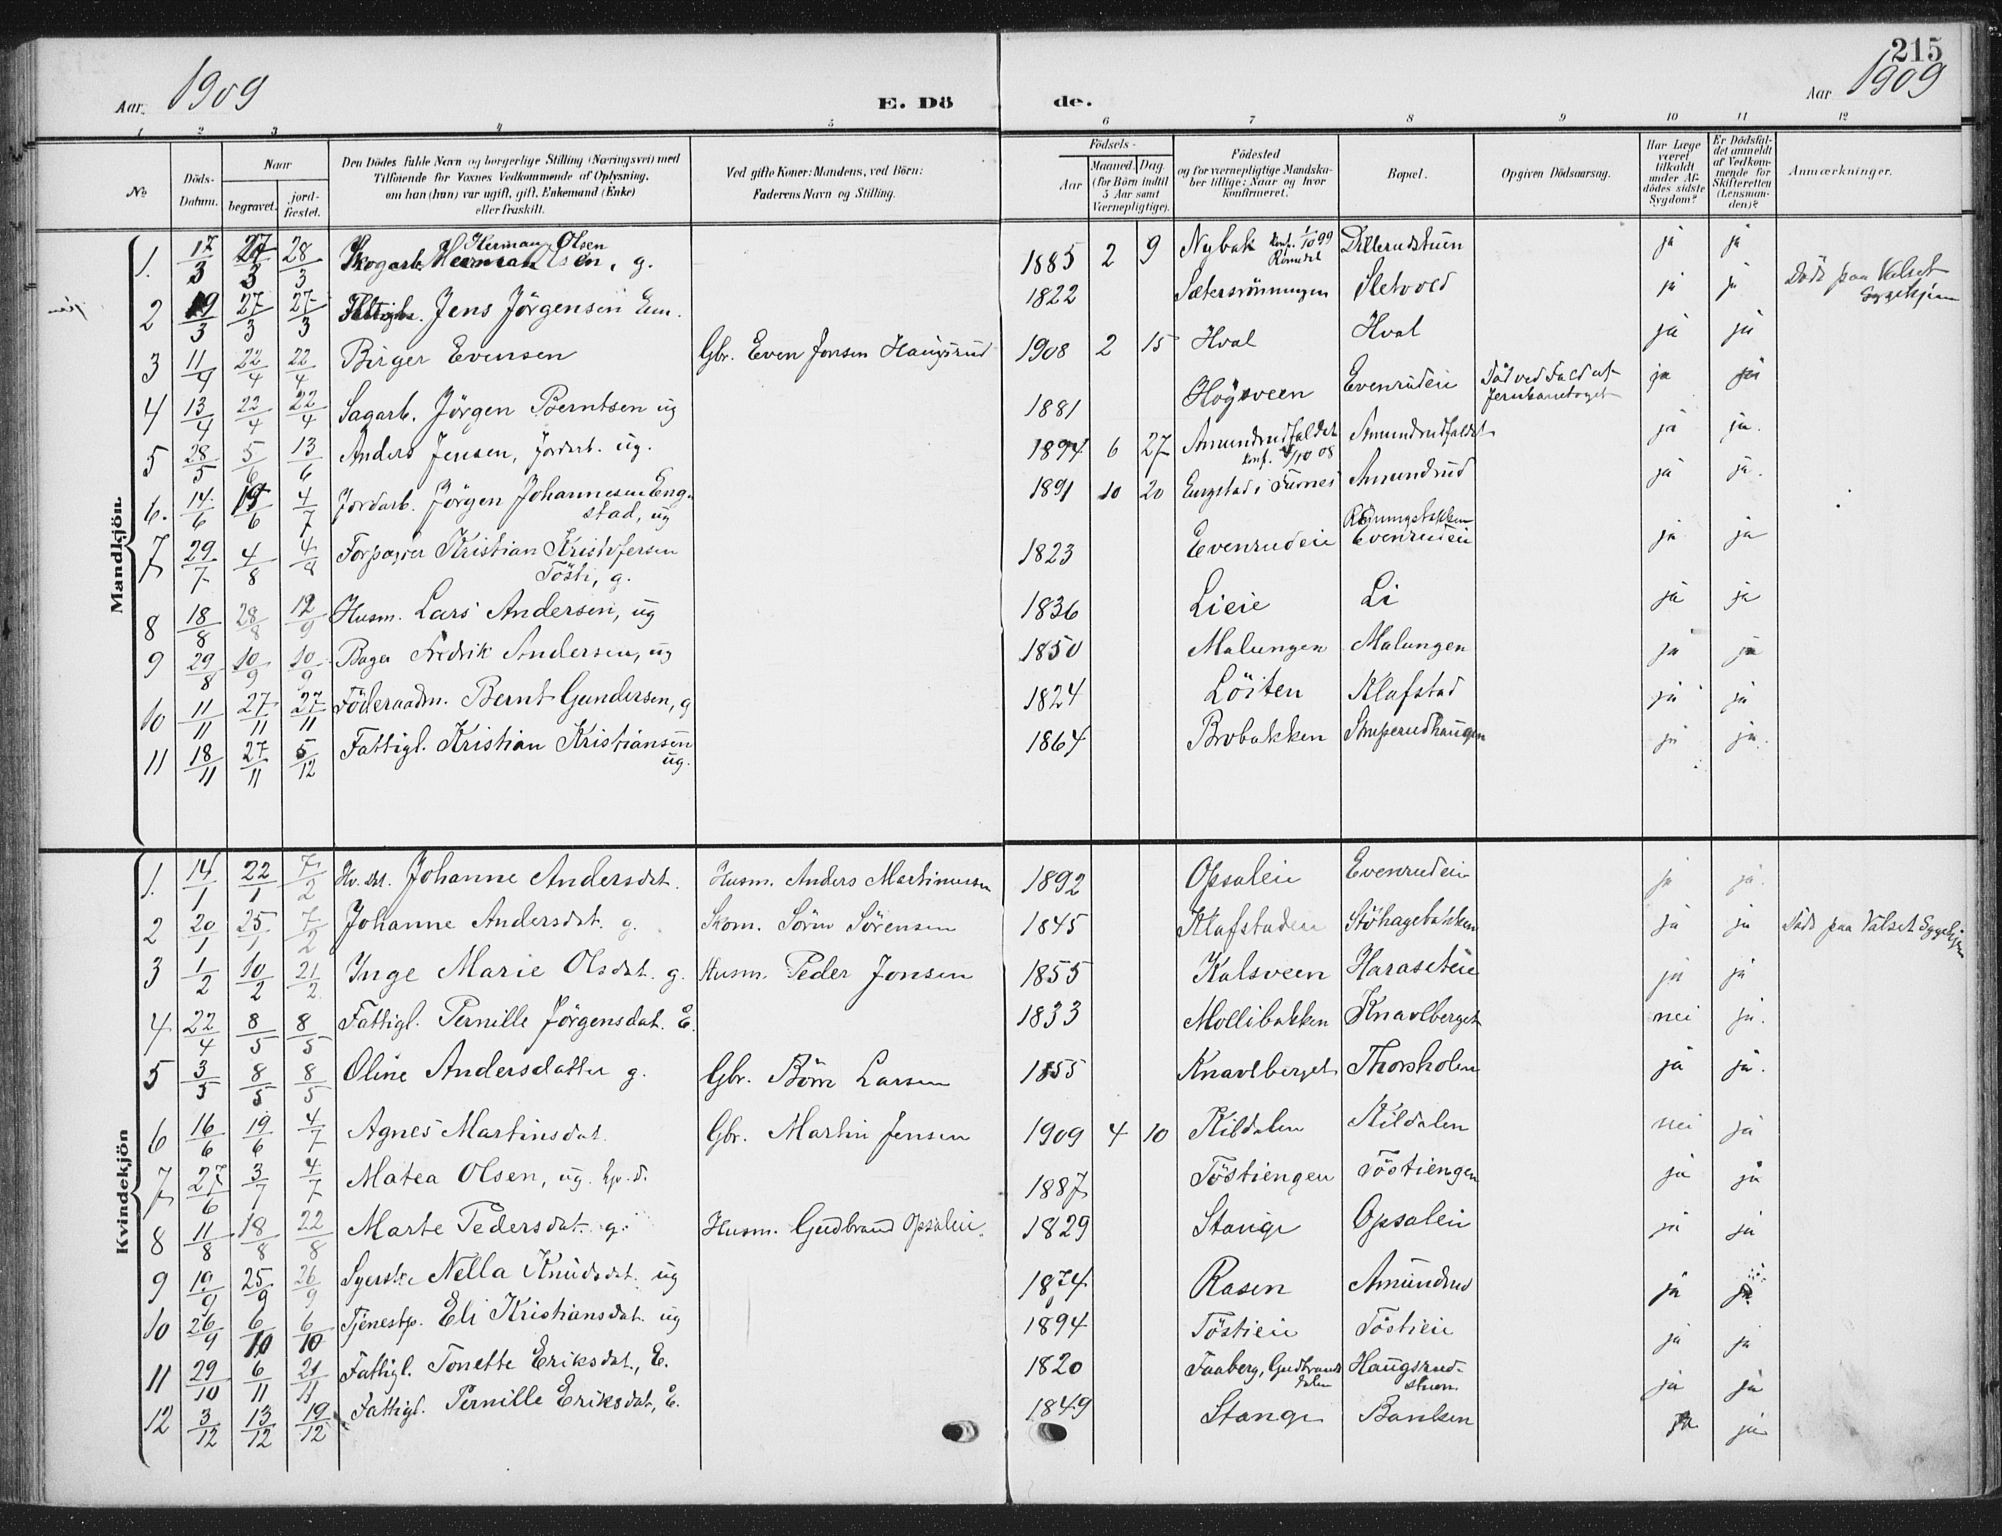 215
Aar 1909 E. Dö de. Aar 1909
1 2 3 4 5 6 7 8 9 10 11 12
No Döds-Datum. Naar begravet. jordfæstet. Den Dödes fulde Navn og borgerlige Stilling (Næringsvei) med Tilföiende for Voxnes Vedkommende af Oplysning, om han (hun) var ugift, gift, Enkemand (Enke) eller fraskilt. Ved gifte Koner: Mandens, ved Börn: Faderens Navn og Stilling. Födsels- Aar Maaned. Dag. (for Börn indtil 5 Aar samt Værnepligtige). Födested og for værnepligtige Mandskaber tillige: Naar og hvor konfirmeret. Bopæl. Opgiven Dödsaarsag. Har Læge været tilkaldt under Afdödes sidste Sygdom? Er Dödsfaldet anmeldt af Vedkommende for Skifteretten (Lensmanden)? Anmærkninger.
Mandkjön.
1. 17/3 27/3 28/3 Skogarb. Herman Olsen, g. 1885 2 9 Nybak konf. 1/10 99 Romedal Dillerudstuen ja ja
2 19/3 27/3 27/3 Jens Jörgensen Em. 1822 Sætersrönningen Sletvold ja ja Död paa Valset Sygehjem
3 11/4 22/4 22/4 Birger Evensen Gbr. Even Jonsen Haugsrud 1908 2 15 Hval Hval ja ja
4 13/4 22/4 22/4 Sagarb. Jörgen Berntsen ug 1881 Högsveen Evenrudeie Död ved Fald ja ja
5 28/5 5/6 13/6 Anders Jensen, Jordarb. ug. 1894 6 27 Amundrudfaldet konf. 4/10 08 Amundrudfaldet ja ja.
6. 14/6 19/6 4/7 Jordarb. Jörgen Johannesen Engstad, ug 1891 10 20 Engstad i Furnes Amundrud ja ja.
7 29/7 4/8 4/8 Forpagter Kristian Kristofersen Tösti, g. 1823 Evenrudeie Evenrudeie ja ja
8 18/8 28/8 12/9 Husm. Lars Andersen, ug 1836 Lieie Li ja ja
9 29/8 10/9 10/9 Bager Fredrik Andersen, ug 1850 Malungen Malungen ja ja
10 11/11 27/11 27/11 Föderaadm. Bernt Gundersen, g 1824 Löiten Klafstad ja ja
11 18/11 27/11 5/12 Fattigl. Kristian Kristiansen ug. 1864 Brobakken Struperudhaugen ja ja.
Kvindekjön
1. 14/1 22/1 7/2 Johanne Andersdat. Husm. Anders Martinusen 1892 Opsaleie Evenrudeie ja ja.
2 20/1 25/1 7/2 Johanne Andersdat. g. Skom. Sören Sörensen 1845 Klafstadeie Stöhagebakken ja ja Död paa Valset Sygehjem
3 1/2 10/2 21/2 Inge Marie Olsdat. g. Husm. Peder Jonsen 1855 Kalsveen Haraseteie ja ja
4 22/4 8/5 8/5 Fattigl. Pernille Jörgensdat. E. 1833 Mollibakken Knavlberget nei ja.
5 3/5 8/5 8/5 Oline Andersdatter g. Gbr. Börn Larsen 1855 Knavlberget Thorsholen ja ja.
6 16/6 19/6 4/7 Agnes Martinsdat. Gbr. Martin Jensen 1909 4 10 Kildalen Kildalen nei ja
7 27/6 3/7 4/7 Matea Olsen, ug. 1887 Töstiengen Töstiengen ja ja
8 11/8 18/8 22/8 Marte Pedersdat. g. Husm. Gudbrand Opsaleie. 1829 Stange Opsaleie ja ja
9 19/9 25/9 26/9 Syerske Nella Knudsdat. ug 1874 Rasen Amundrud ja ja
10 26/9 6/10 6/10 Tjenestp. Eli Kristiansdat. ug 1894 Töstieie Töstieie ja ja
11 29/10 6/11 21/11 Fattigl. Tonette Eriksdat., E. 1820 Faaberg, Gudbrandsdalen Haugsrudstuen ja ja
12 3/12 13/12 19/12 Fattigl. Pernille Eriksdat, E. 1849 Stange Banken ja ja